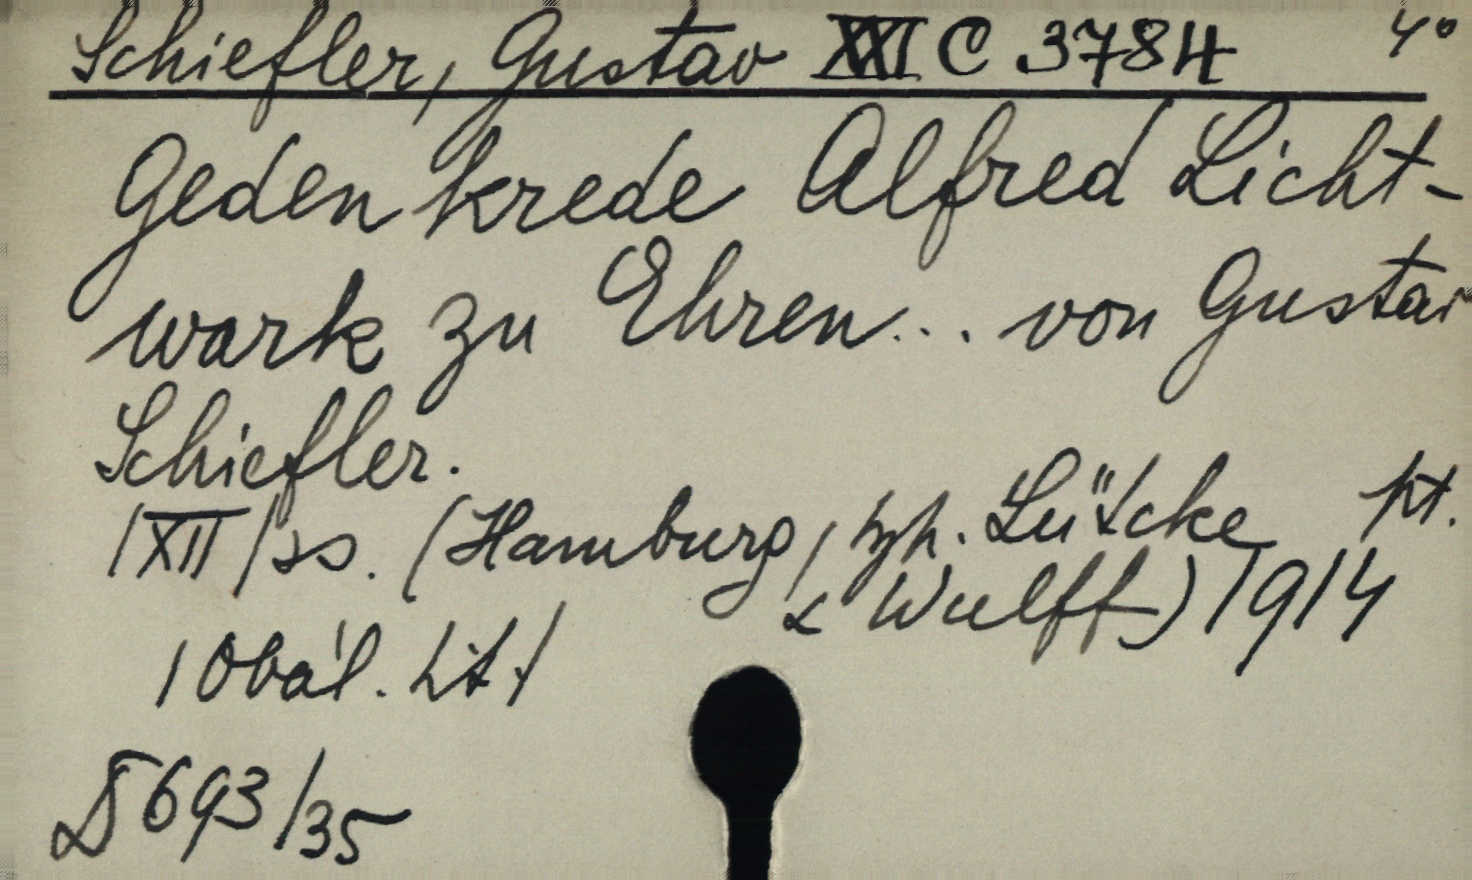 Schiefler, Gustav XXI C 3784 4°
Gedenkrede Alfred Licht-
wark zu Ehren... von Gustav
Schiefler.
/XII/ ss. (Hamburg, Lütcke pt.
& Wulff) 1914
/Obál. tit./
D 693/35